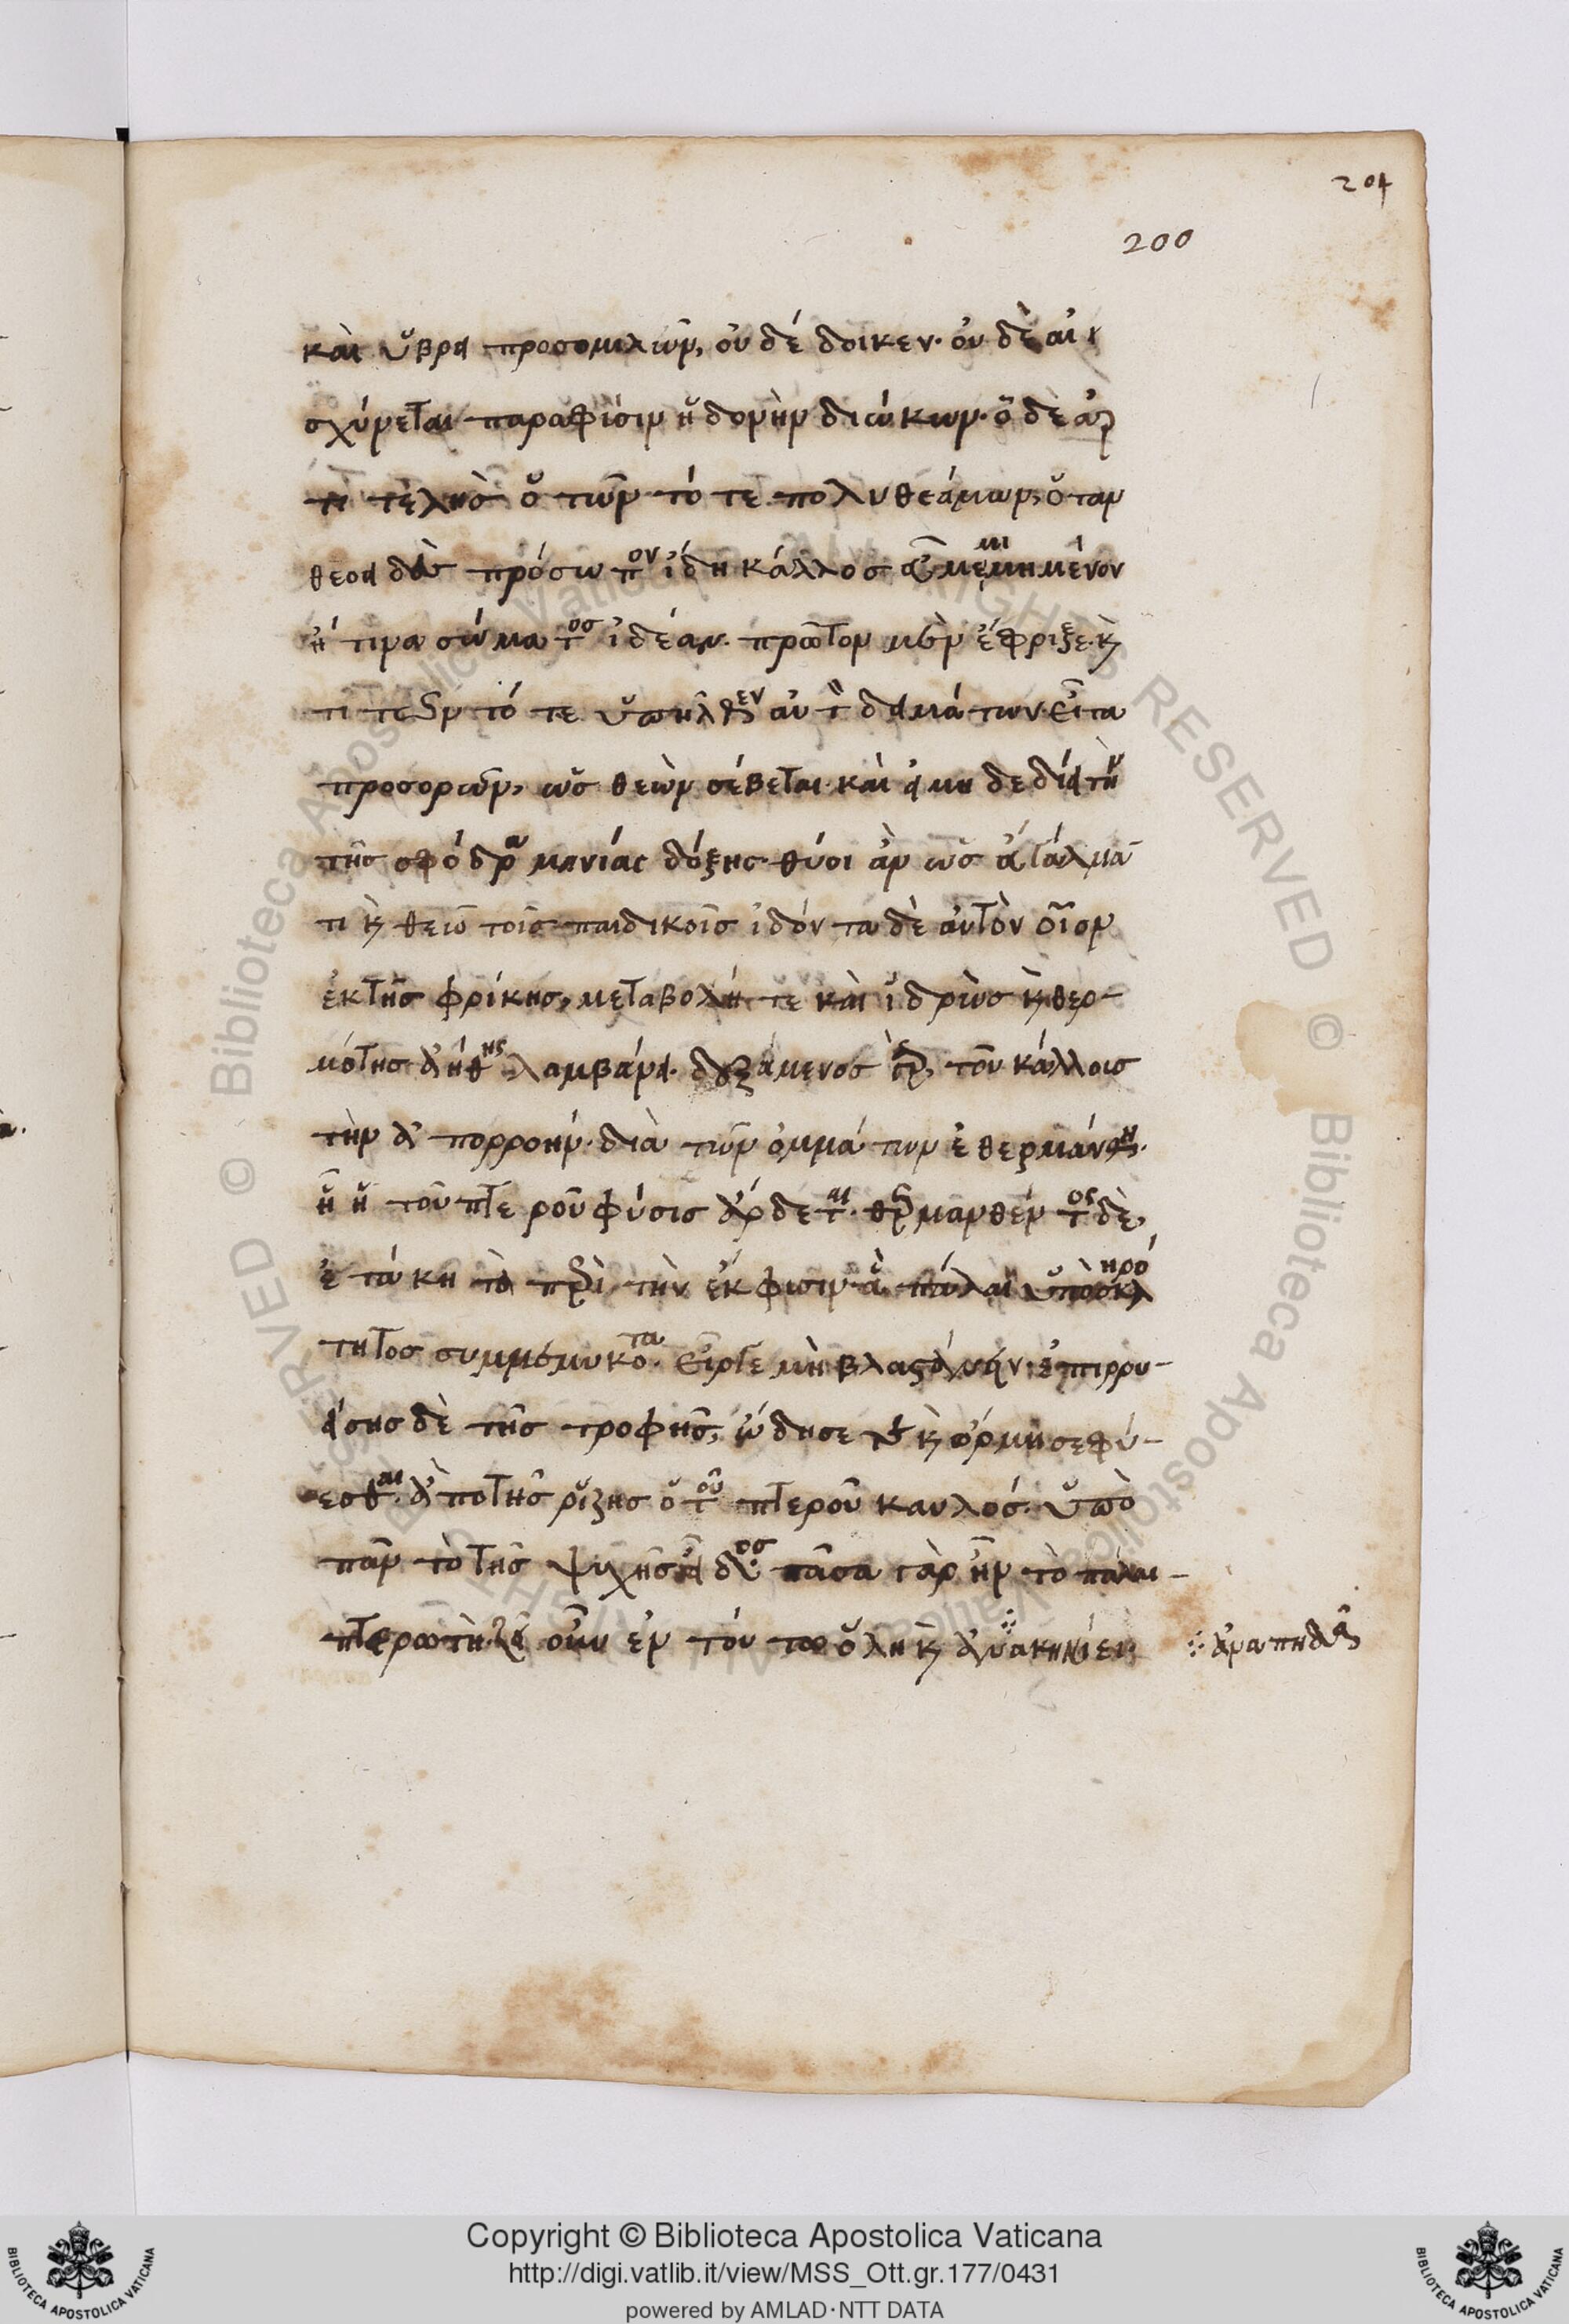 204
200
καὶ ὕβρει προσομιλῶν, οὐ δέδοικεν. οὐδὲ αἰ
σχύνεται παραφύσιν ἡδονὴν διώκων. ὁ δὲ ἀρ
τιτελὴς ὁ τῶν τότε πολυθεάμων, ὅταν
θεοειδὲς πρόσωπον ἴδη κάλλος εὖ μεμιμημένον
ἤ τινα σώματος ἰδέαν. πρῶτον μὲν ἔφριξε. καὶ
τι τῶν τότε ὑπῆλθεν αὐτὸν δειμάτων. εἶτα
προσορῶν, ὡς θεὸν σέβεται. καὶ εἰ μὴ δεδίει τὴν
τῆς σφόδρα μανίας δόξης. θύοι ἂν ὡς ἀγάλμα
τι καὶ θεῶ τοῖς παιδικοῖς ἰδόντα δὲ αὐτὸν οἷον
ἐκ τῆς φρίκης, μεταβολή τε καὶ ἱδρὼς καὶ θερ-
μότης ἀήθης λαμβάνει. δεξάμενος γὰρ τοῦ κάλλους
τὴν ἀπορροήν. διὰ τῶν ὀμμάτων ἐθερμάνθη.
ἧ ἡ τοῦ πτεροῦ φύσις ἄρδεται. θερμανθέντος δὲ,
ἐτάκη τὰ περὶ τὴν ἔκφυσιν. ἃ πάλαι ὑπὸ σκληρό
τητος συμμεμυκότα. εἶργε μὴ βλαστάνειν. ἐπιρρυ-
είσης δὲ τῆς τροφῆς, ὤδησέ τε καὶ ὥρμησε φύ-
εσθαι. ἀπὸ τῆς ῥίζης ὁ τοῦ πτεροῦ καυλός. ὑπὸ
πᾶν τὸ τῆς ψυχῆς εἶδος. πᾶσα γὰρ ἦν τὸ πάλαι-
πτερωτή. ζεῖ οὖν ἐν τούτω ὅλη καὶ ἀνακηκίει,
ἀναπηδᾶ
Copyright © Biblioteca Apostolica Vaticana
http://digi.vatlib.it/view/MSS_Ott.gr.177/0431
powered by AMLAD·NTT DATA